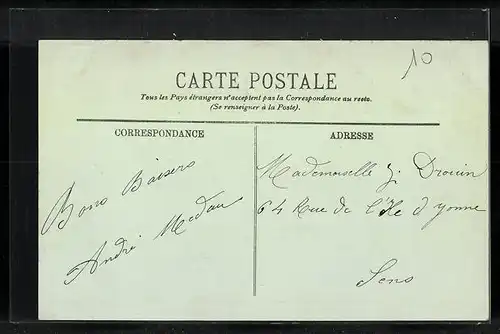 10
CARTE POSTALE
Tous les Pays étrangers n'acceptent pas la Correspondance au recto.
(Se renseigner à la Poste).
CORRESPONDANCE
Bons Baisers
André Medau
ADRESSE
Mademoiselle J. Drouin
64 Rue de l'Ile d'Yonne
Sens